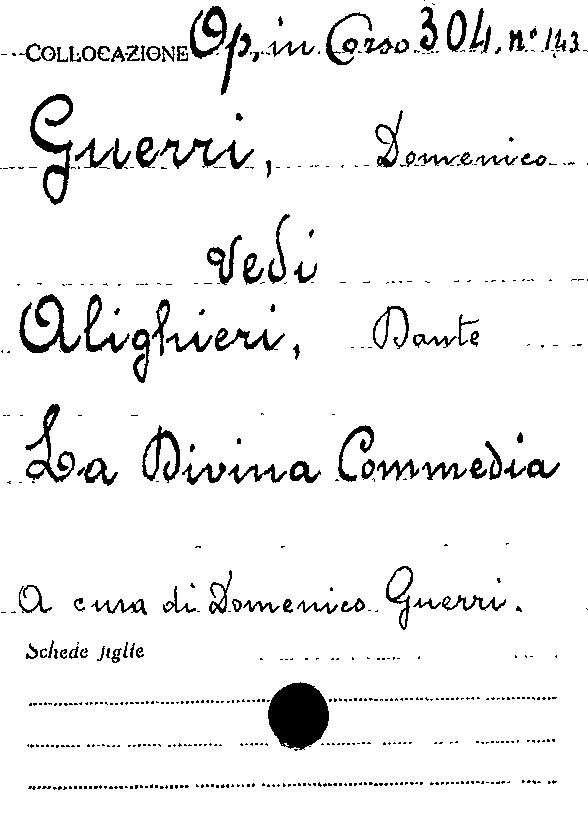 COLLOCAZIONE Op. in Corso 304. n° 143
Guerri, Domenico
vedi
Alighieri, Dante
La Divina Commedia
A cura di Domenico Guerri.
Schede figlie